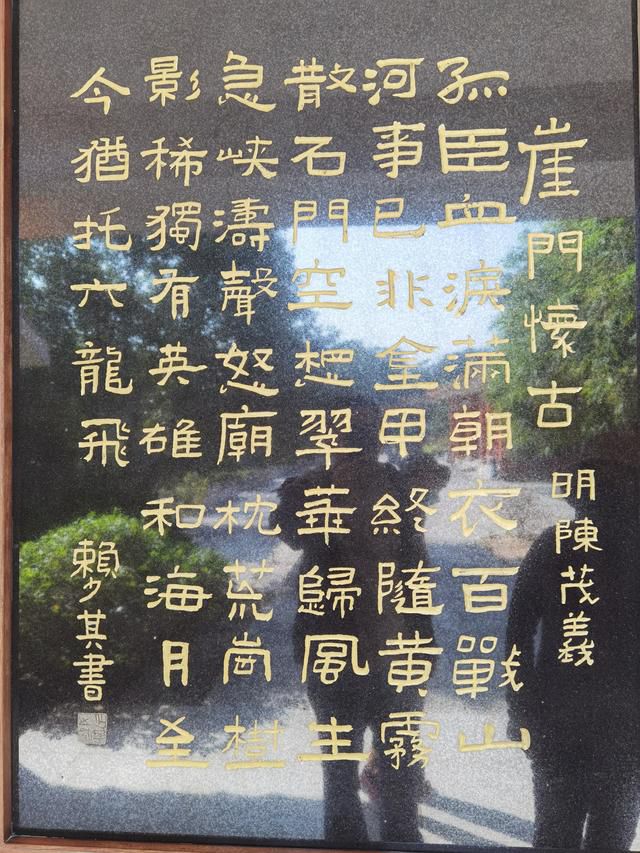 崖門懷古 明陳茂義
孤臣血淚滿朝衣百戰山
河事已非金甲終隨黃霧
散石門空想翠華歸風生
急峽濤聲怒廟枕荒崗樹
影稀獨有英雄和海月至
今猶托六龍飛 賴少其書